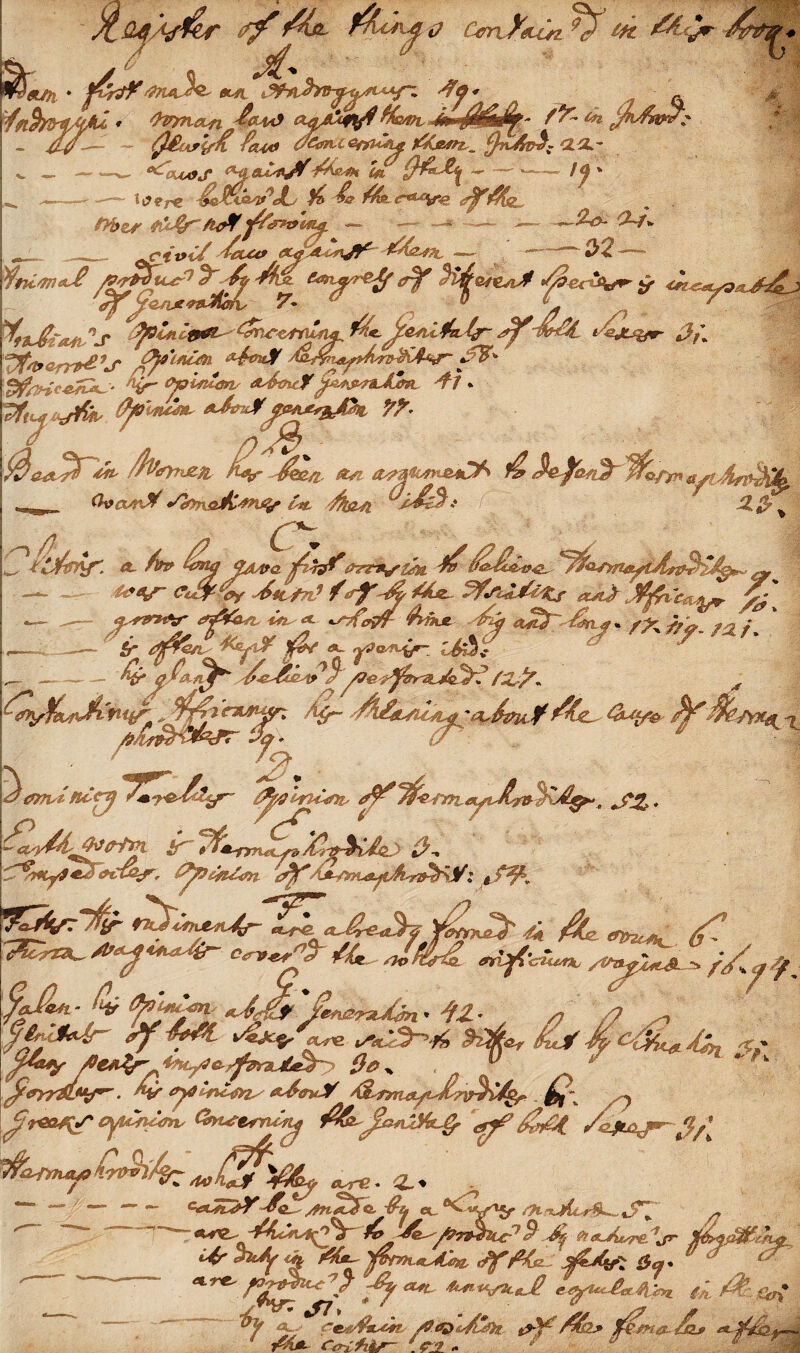 Register of the things contain'd in this booq.
A.
Adam. first made an Androgynus. 49.
Androgyni. roman law against them in Italy. 17. in Introd:
- - - - Jewish law concerning them. Introd: 22.
- - - - Laws against them in Italy - - - 19.
- - - - were believ'd to be the cause of the
river nils not flowing - - - - - 20. 21.
- - - civil law against them - - 32 -
Animal produc'd by the congress of different Species is incapable
of Generation 7.
Arabian's Opinion concerning the Genitals of both Sexes 31.
Averroe's Opinion about hermaphrodites 58.
Avicena. his opinion about Generation 41.
Augustin Opinion about generation 77.
B
Beard in Women has been an argument to defend Hermaphrodits
- want sometimes in Men ibid: 23.
C.
Clitoris. a too long gave first occasion to believe Hermaphrodites 9.
- - - was cut or burn't of by the Asiatiks and Africans 10.
- - - grows often in a short time big and long. 17. 119. 121.
- - - is often kept for a penis. ibid:
- - - his glans believ'd perforated. 127.
Constantinus Africanus. his Meaning about the cause of Herma-
phrodites. 39.
D.
Dominicq Terelius Opinion of Hermaphrodites. 52.
E
Earth worm is Hermaphrodite 3.
Empedocles. Opinion of hermaphrodit: 54.
F.
Fetus. His rudiments are already formed in the ovum 6.
vaginalis cover'd the whole orificium vaginæ 16. 94.
G.
Galen. his Opinion about Generation. 42.
Genitals of both Sexes are said to differ but by Situation 31.
Glans penis imperforated 30.
Gorræus. his opinion about hermaphrodites 61.
Greeks opinion concerning the Genitals of both Sexes 31.
H
Hermaphrodites. what they are. 2.
- - - - - cannot be made by a Lusus naturæ 5.
- - - - - are think'd to be produc'd by nature's forgetting
its duty in the formation of the fetus. 39.
- - - are produc'd by an unusual copulation in the coi
tus. 51.
- - - by a certain position of the female after
the coitus 52.